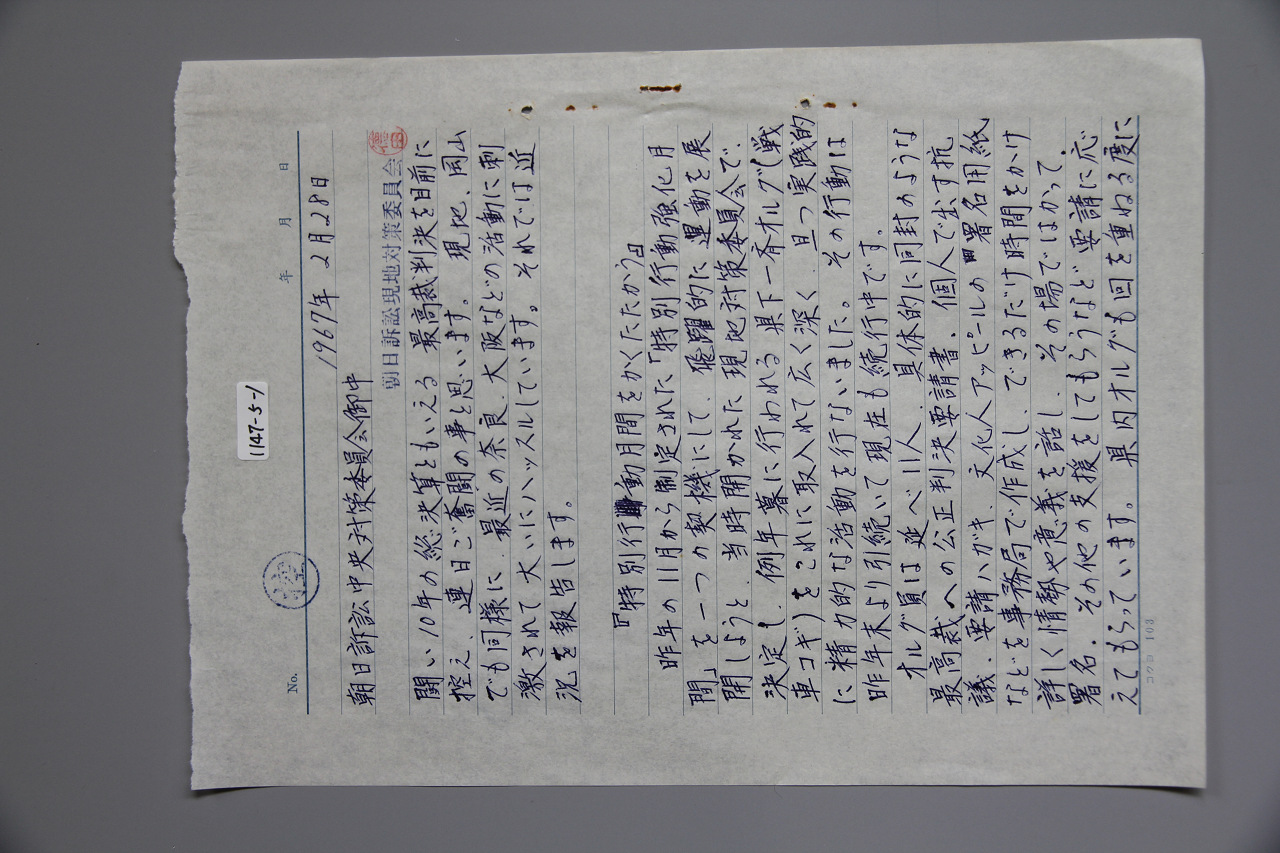 1147-5-1
No.
年 月 日
1967年 2月28日
朝日訴訟中央対策委員会御中
朝日訴訟現地対策委員会
闘い10年の総決算ともいえる 最高裁判決を目前に
控え、連日ご奮闘の事と思います。 現地、岡山
でも同様に、最近の奈良、大阪などの活動に刺
激されて大いにハッスルしています。それでは近
況を報告します。
『特別行動月間をかくたたかう』
昨年の11月から制定された「特別行動強化月
間」を一つの契機にして、飛躍的に運動を展
開しようと、当時開かれた現地対策委員会で、
決定し、例年暮に行われる県下一斉オルグ(戦
車コギ)をこれに取入れて広く深く、且つ実践的
に精力的な活動を行ないました。その行動は
昨年末より引続いて現在も続行中です。
オルグ員は延べ11人、具体的に同封のような
最高裁への公正判決要請書、個人で出す抗
議、要請ハガキ、文化人アッピールの署名用紙
などを事務局で作成し、できるだけ時間をかけ
詳しく情勢や意義を話し、その場ではかって、
署名、その他の支援をしてもらうなど要請に応
えてもらっています。県内オルグも回を重ねる度に
コクヨ 103